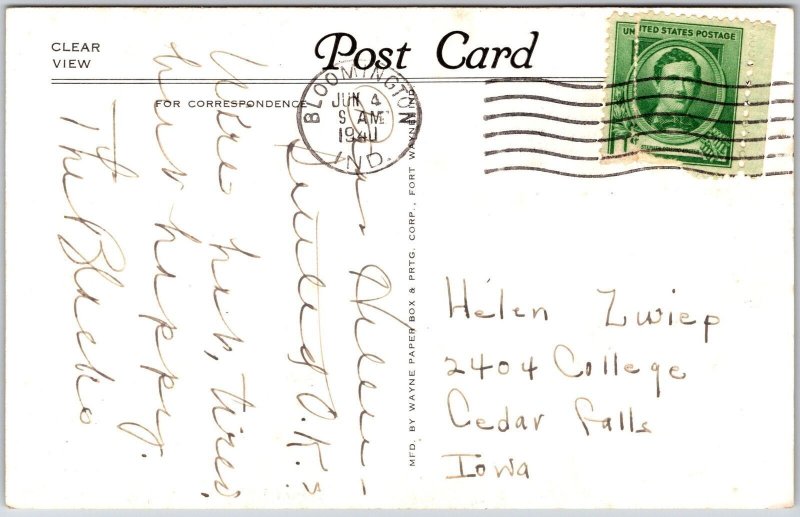 CLEAR
VIEW
Post Card
FOR CORRESPONDENCE
BLOOMINGTON
JUN 4
9 AM
1940
IND.
UNITED STATES POSTAGE
MFD. BY WAYNE PAPER BOX & PRTG. CORP., FORT WAYNE, IND.
Helen -
O.K.?
We're hot, tired,
but happy.
The Blacks.
Helen Zwiep
2404 College
Cedar Falls
Iowa